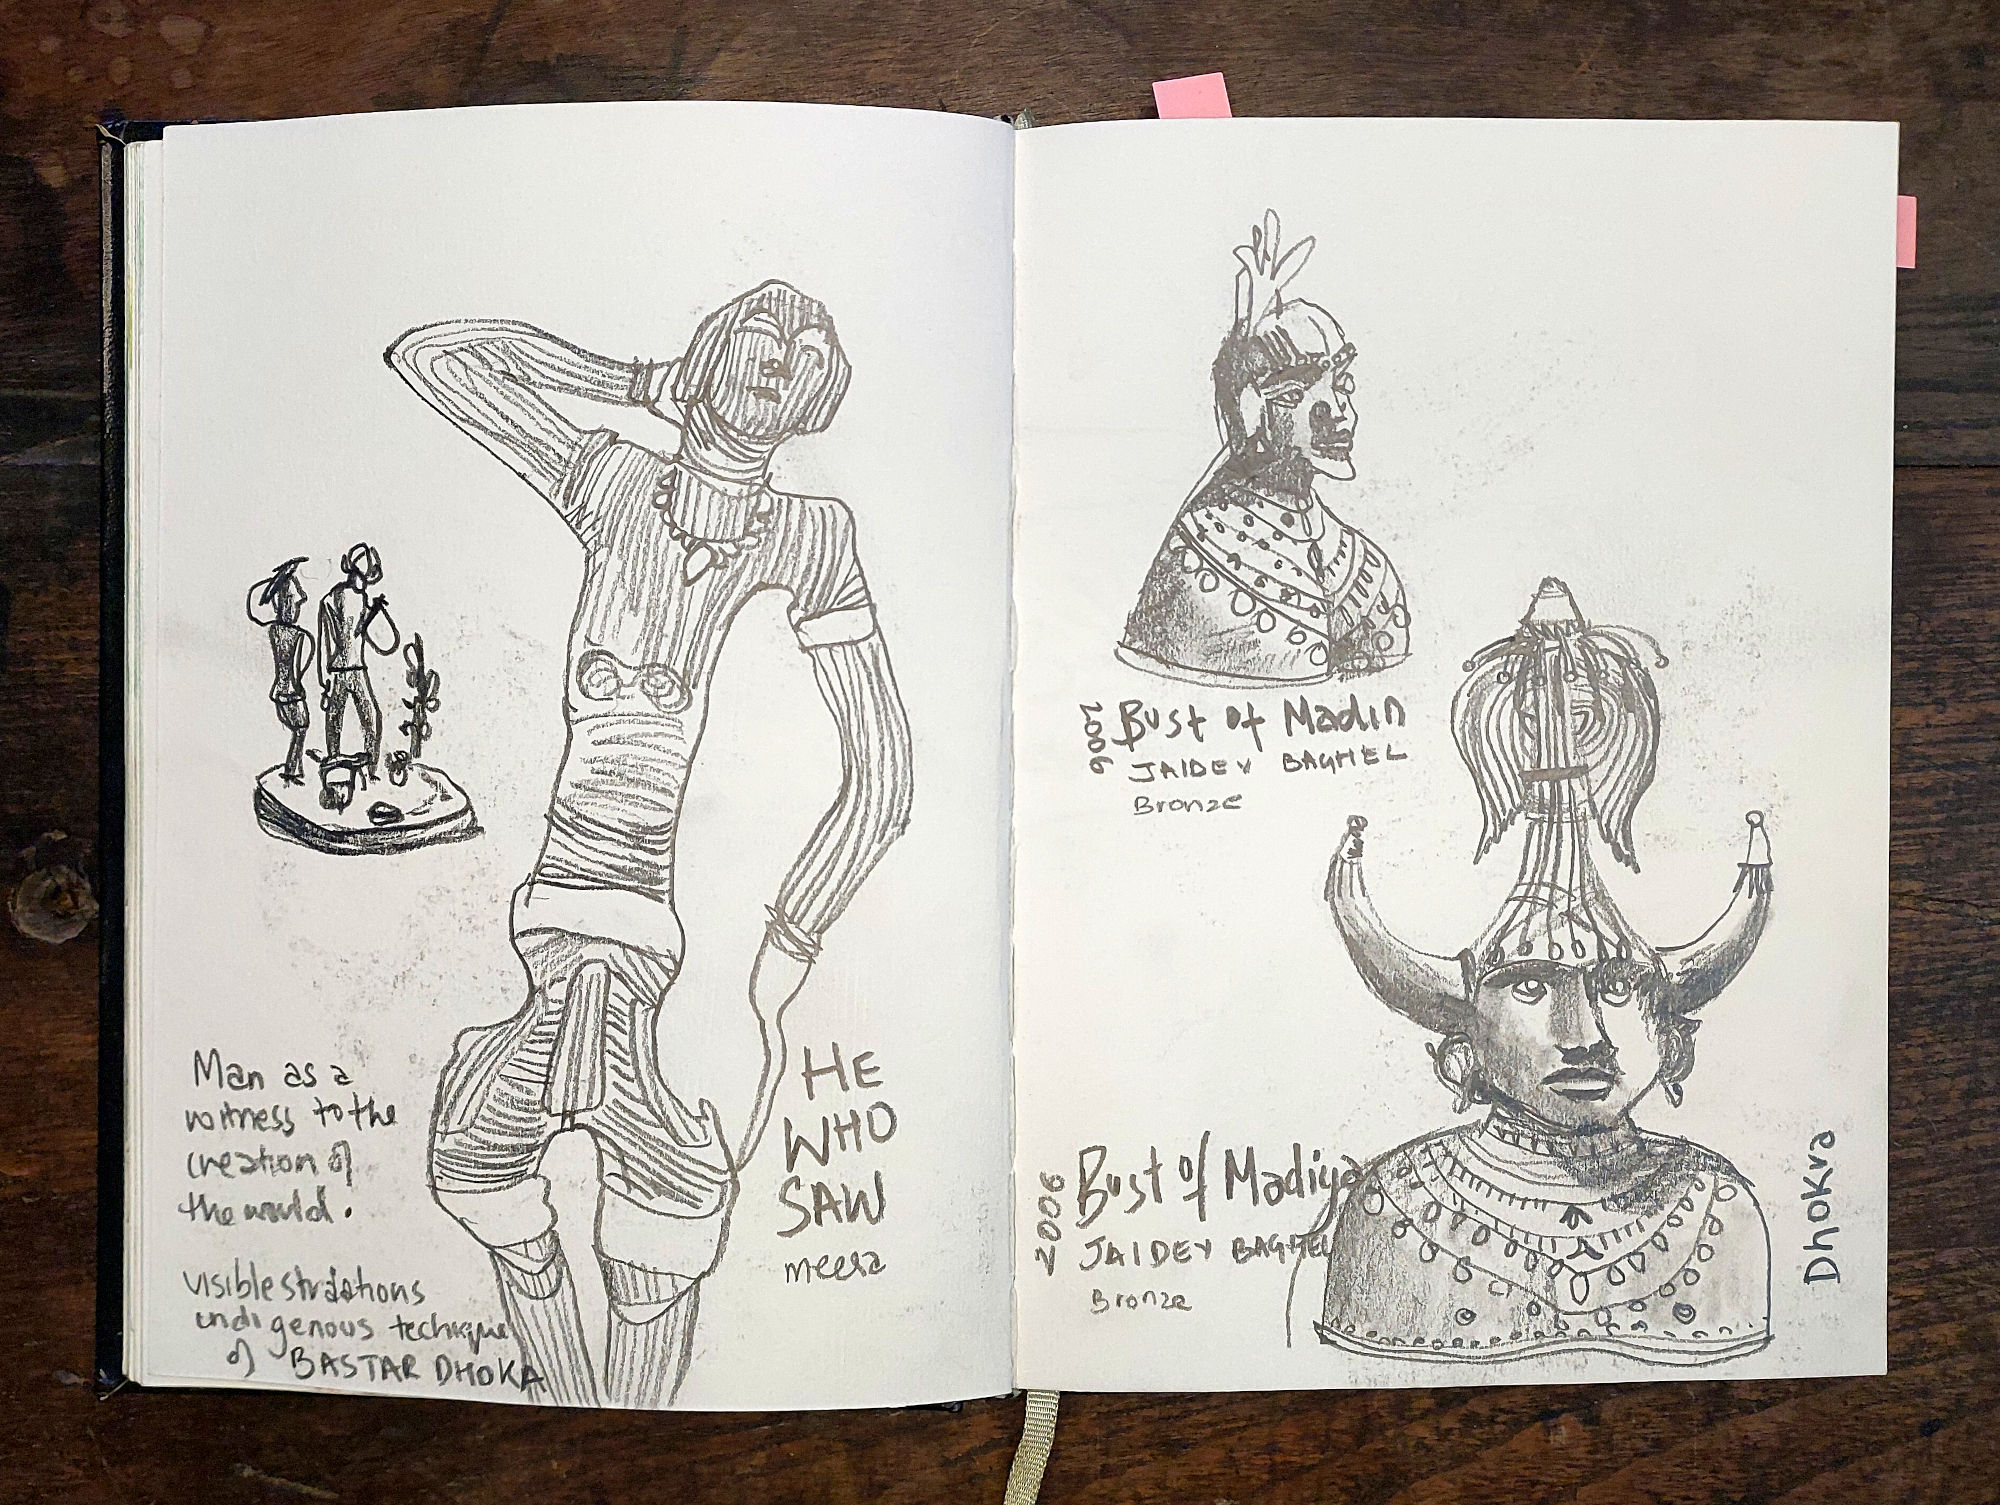 Man as a
witness to the
creation of
the world.
visible striations
indigenous technique
of BASTAR DHOKA
HE
WHO
SAW
meera
2006
Bust of Madin
JAIDEV BAGHEL
Bronze
2006
Bust of Madiya
JAIDEV BAGHEL
Bronze
Dhokra